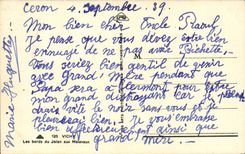 Ceron 4 Septembre 39
Mon bien cher Oncle Raoul
Je pense que vous devez être bien
ennuyé de ne pas avoir Bichette,
Vous seriez bien gentil de venir
avec Grand' Mère pendant que
Papa sera à Clermont pour
mon grand car je
vite la nuit sans vous et je
bien Je vous embrasse
bien affectueusement ainsi que
grand' mère.
Marie Huguette
123 VICHY
Les bords du Jolan aux Malavaux